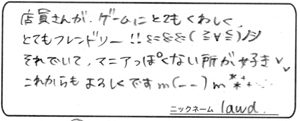 店員さんが、ゲームにとてもくわしく、
とてもフレンドリー!!ミ=ミ=ミ(≧∀≦)ノシ
それでいて、マニアっぽくない所が好き✓✓
これからもよろしくですm(--)m
ニックネーム lawd.